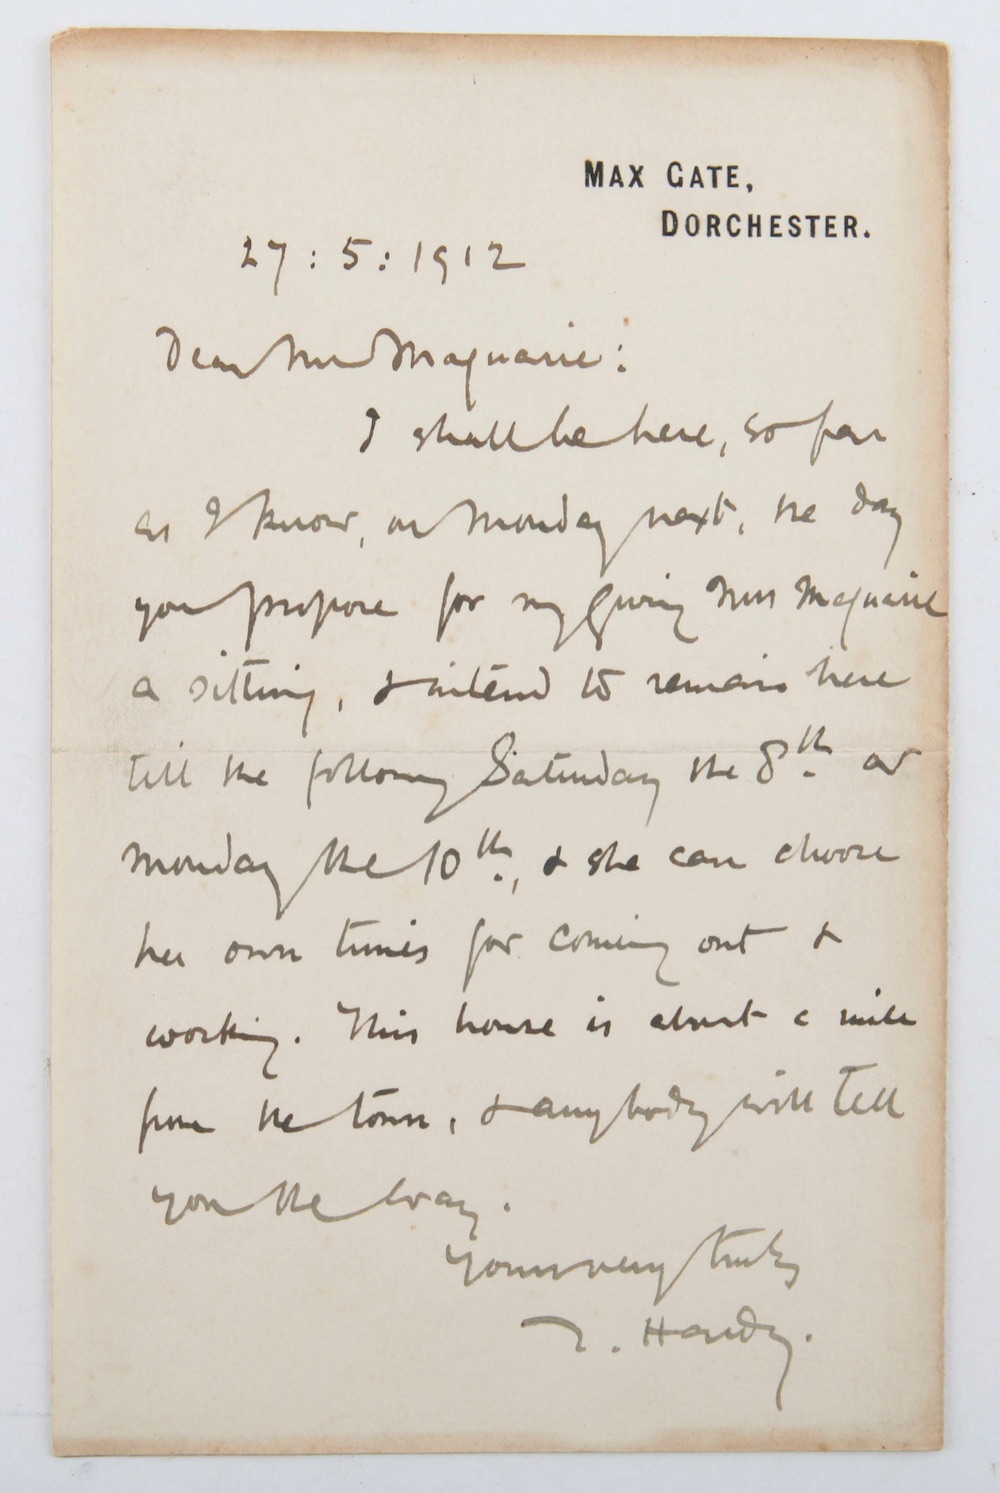 MAX GATE,
DORCHESTER.
27 : 5 : 1912
Dear Mr Maquarie:
I shall be here, so far
as I know, on Monday next, the day
you propose for my giving Mrs Maquarie
a sitting, & intend to remain here
till the following Saturday the 8th. or
Monday the 10th., & she can choose
her own times for coming out &
working. This house is about a mile
from the town, & anybody will tell
you the way.
Yours very truly
T. Hardy.